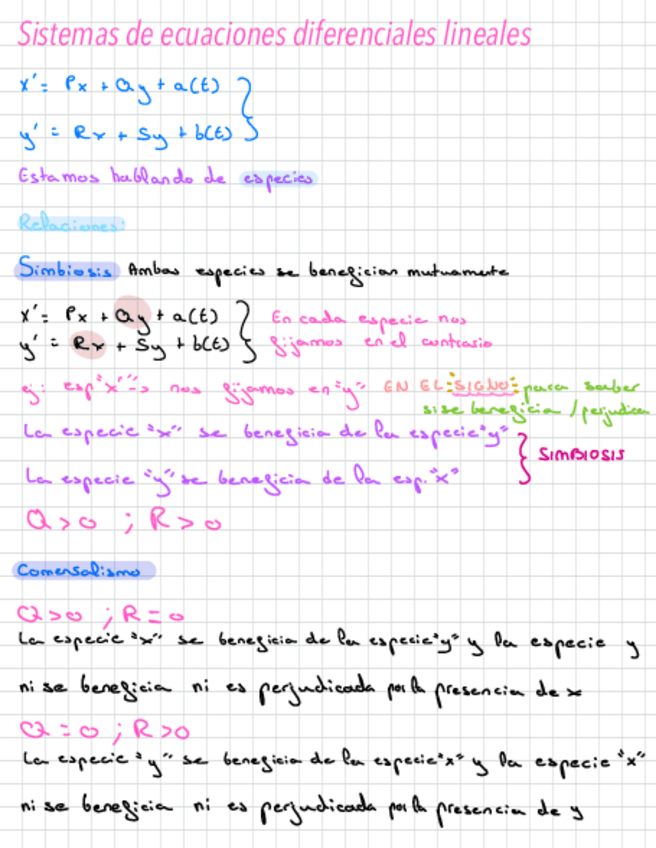 Sistemas de ecuaciones diferenciales lineales
x' = Px + Qy + a(t)
y' = Rx + Sy + b(t)
Estamos hablando de especies
Relaciones:
Simbiosis Ambas especies se benefician mutuamente
x' = Px + Qy + a(t)
y' = Rx + Sy + b(t)
En cada especie nos
fijamos en el contrario
ej: esp "x" -> nos fijamos en "y" EN EL SIGNO para saber
si se beneficia / perjudica
La especie "x" se beneficia de la especie "y"
La especie "y" se beneficia de la esp. "x"
SIMBIOSIS
Q>0 ; R>0
Comensalismo
Q>0 ; R=0
La especie "x" se beneficia de la especie "y" y la especie y
ni se beneficia ni es perjudicada por la presencia de x
Q=0 ; R>0
La especie "y" se beneficia de la especie "x" y la especie "x"
ni se beneficia ni es perjudicada por la presencia de y